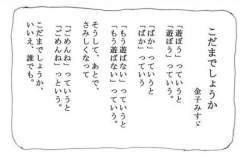 こだまでしょうか
金子みすゞ
「遊ぼう」っていうと
「遊ぼう」っていう。
「ばか」っていうと
「ばか」っていう。
「もう遊ばない」っていうと
「もう遊ばない」っていう。
そうして、あとで、
さみしくなって
「ごめんね」っていうと
「ごめんね」っていう。
こだまでしょうか、
いいえ、誰でも。